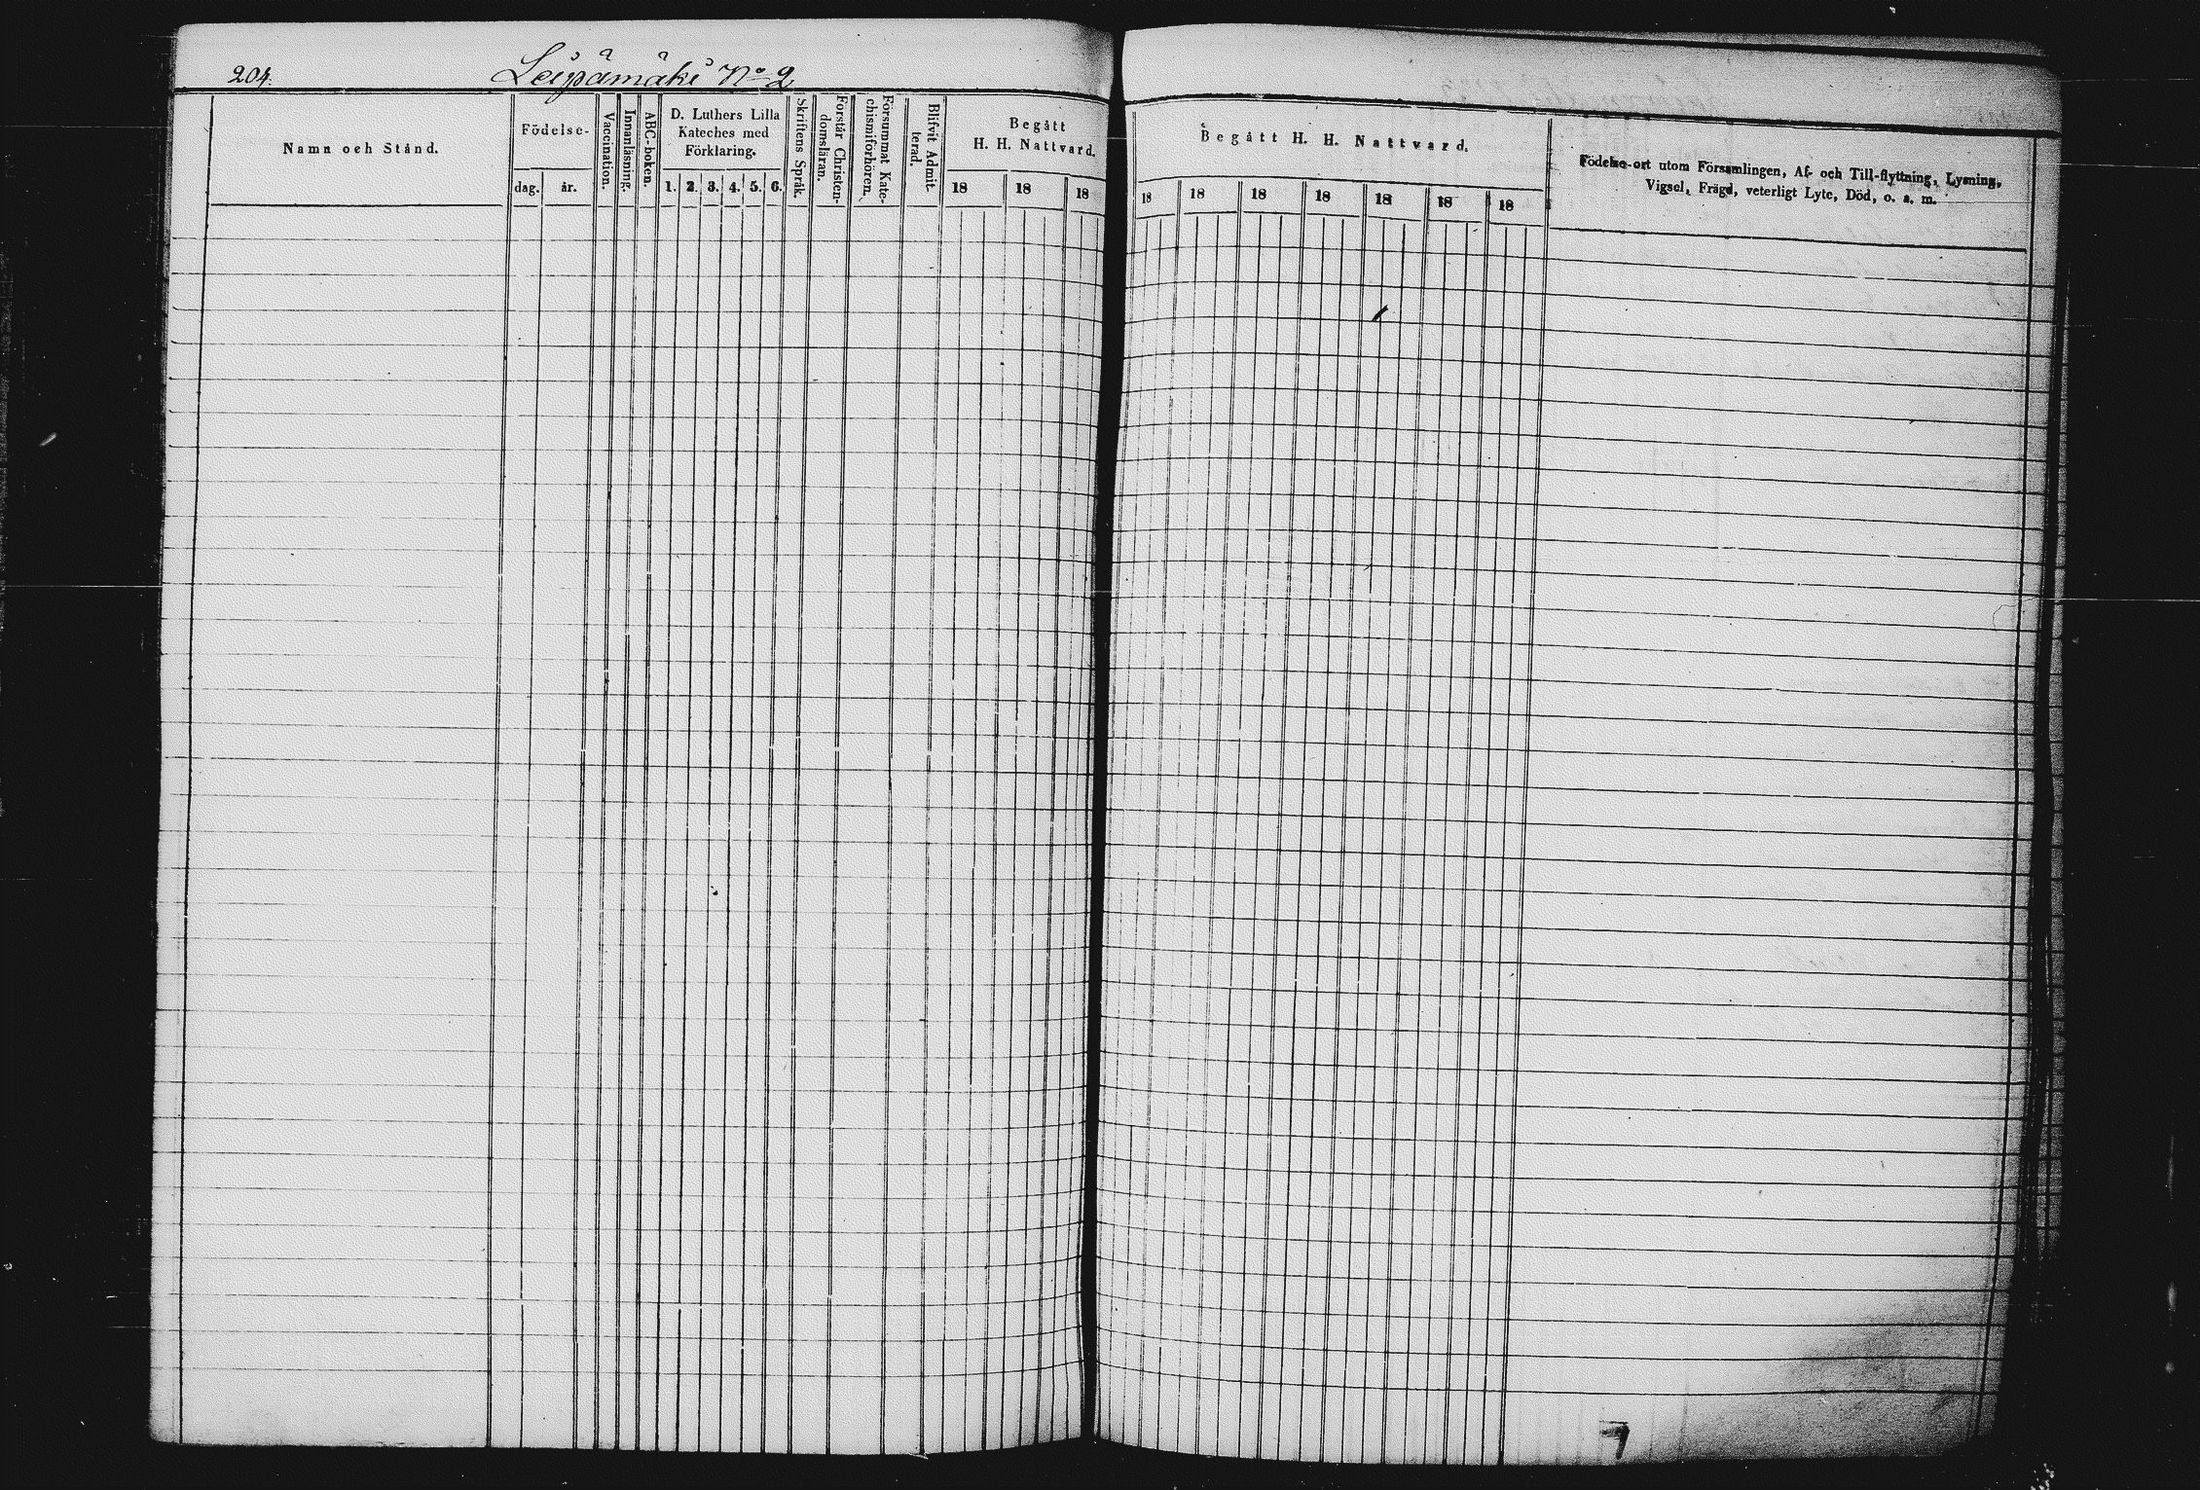 204.
Leipämäki No 2
Namn och Stånd.
Födelse-
dag.
år.
Vaccination.
Innanläsning.
ABC-boken.
D. Luthers Lilla
Kateches med
Förklaring.
1. 2. 3. 4. 5. 6.
Skriftens Språk.
Förstår Christen-
domsläran.
Försummat Kate-
chismiförhören.
Blifvit Admit-
terad.
Begått
H. H. Nattvard.
18 18 18
Begått H. H. Nattvard.
18 18 18 18 18 18 18
Födelse-ort utom Församlingen, Af- och Till-flyttning, Lysning,
Vigsel, Frägd, veterligt Lyte, Död, o. s. m.